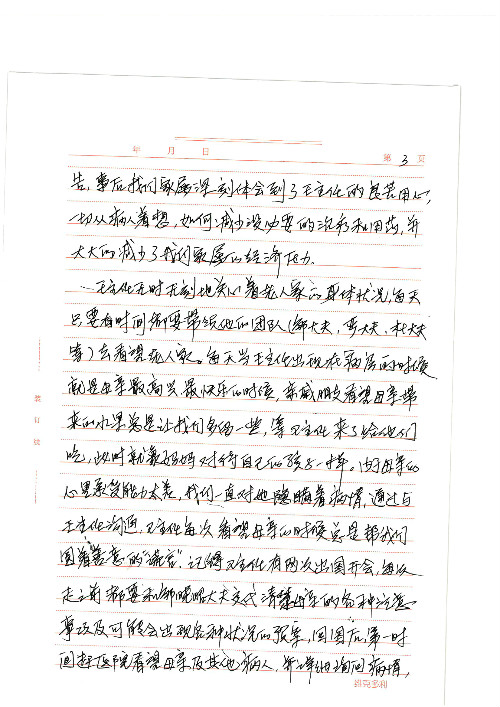 年 月 日
第 3 页
告,事后我们家属深刻体会到了王主任的良苦用心,
一切从病人着想,如何减少没必要的治疗和用药,并
大大的减少了我们家属的经济压力.
王主任无时无刻地关心着老人家的身体状况,每天
只要有时间都要带领他的团队(邹大夫,贾大夫,杜大夫
等)去看望老人家。每天当王主任出现在病房的时候
就是母亲最高兴、最快乐的时候,亲戚朋友看望母亲带
来的水果总是让我们多留一些,等王主任来了给他们
吃,此时就像妈妈对待自己的孩子一样。由于母亲的
心里承受能力太差,我们一直对他隐瞒着病情,通过与
王主任沟通,王主任每次看望母亲的时候总是帮我们
圆着善意的“谎言”,记得王主任有两次出国开会,每次
走之前都要和邹晓 大夫交代清楚母亲的各种注意
事项及可能会出现各种状况的预案,回国后第一时
间赶医院看望母亲及其他病人,并详细询问病情,
装 订 线